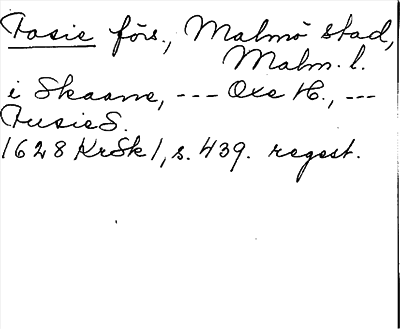 Fosie förs., Malmö stad,
Malm. l.
i Skaane, --- Oxe H., ---
Fusie S.
1628 KrSk 1, s. 439. regest.